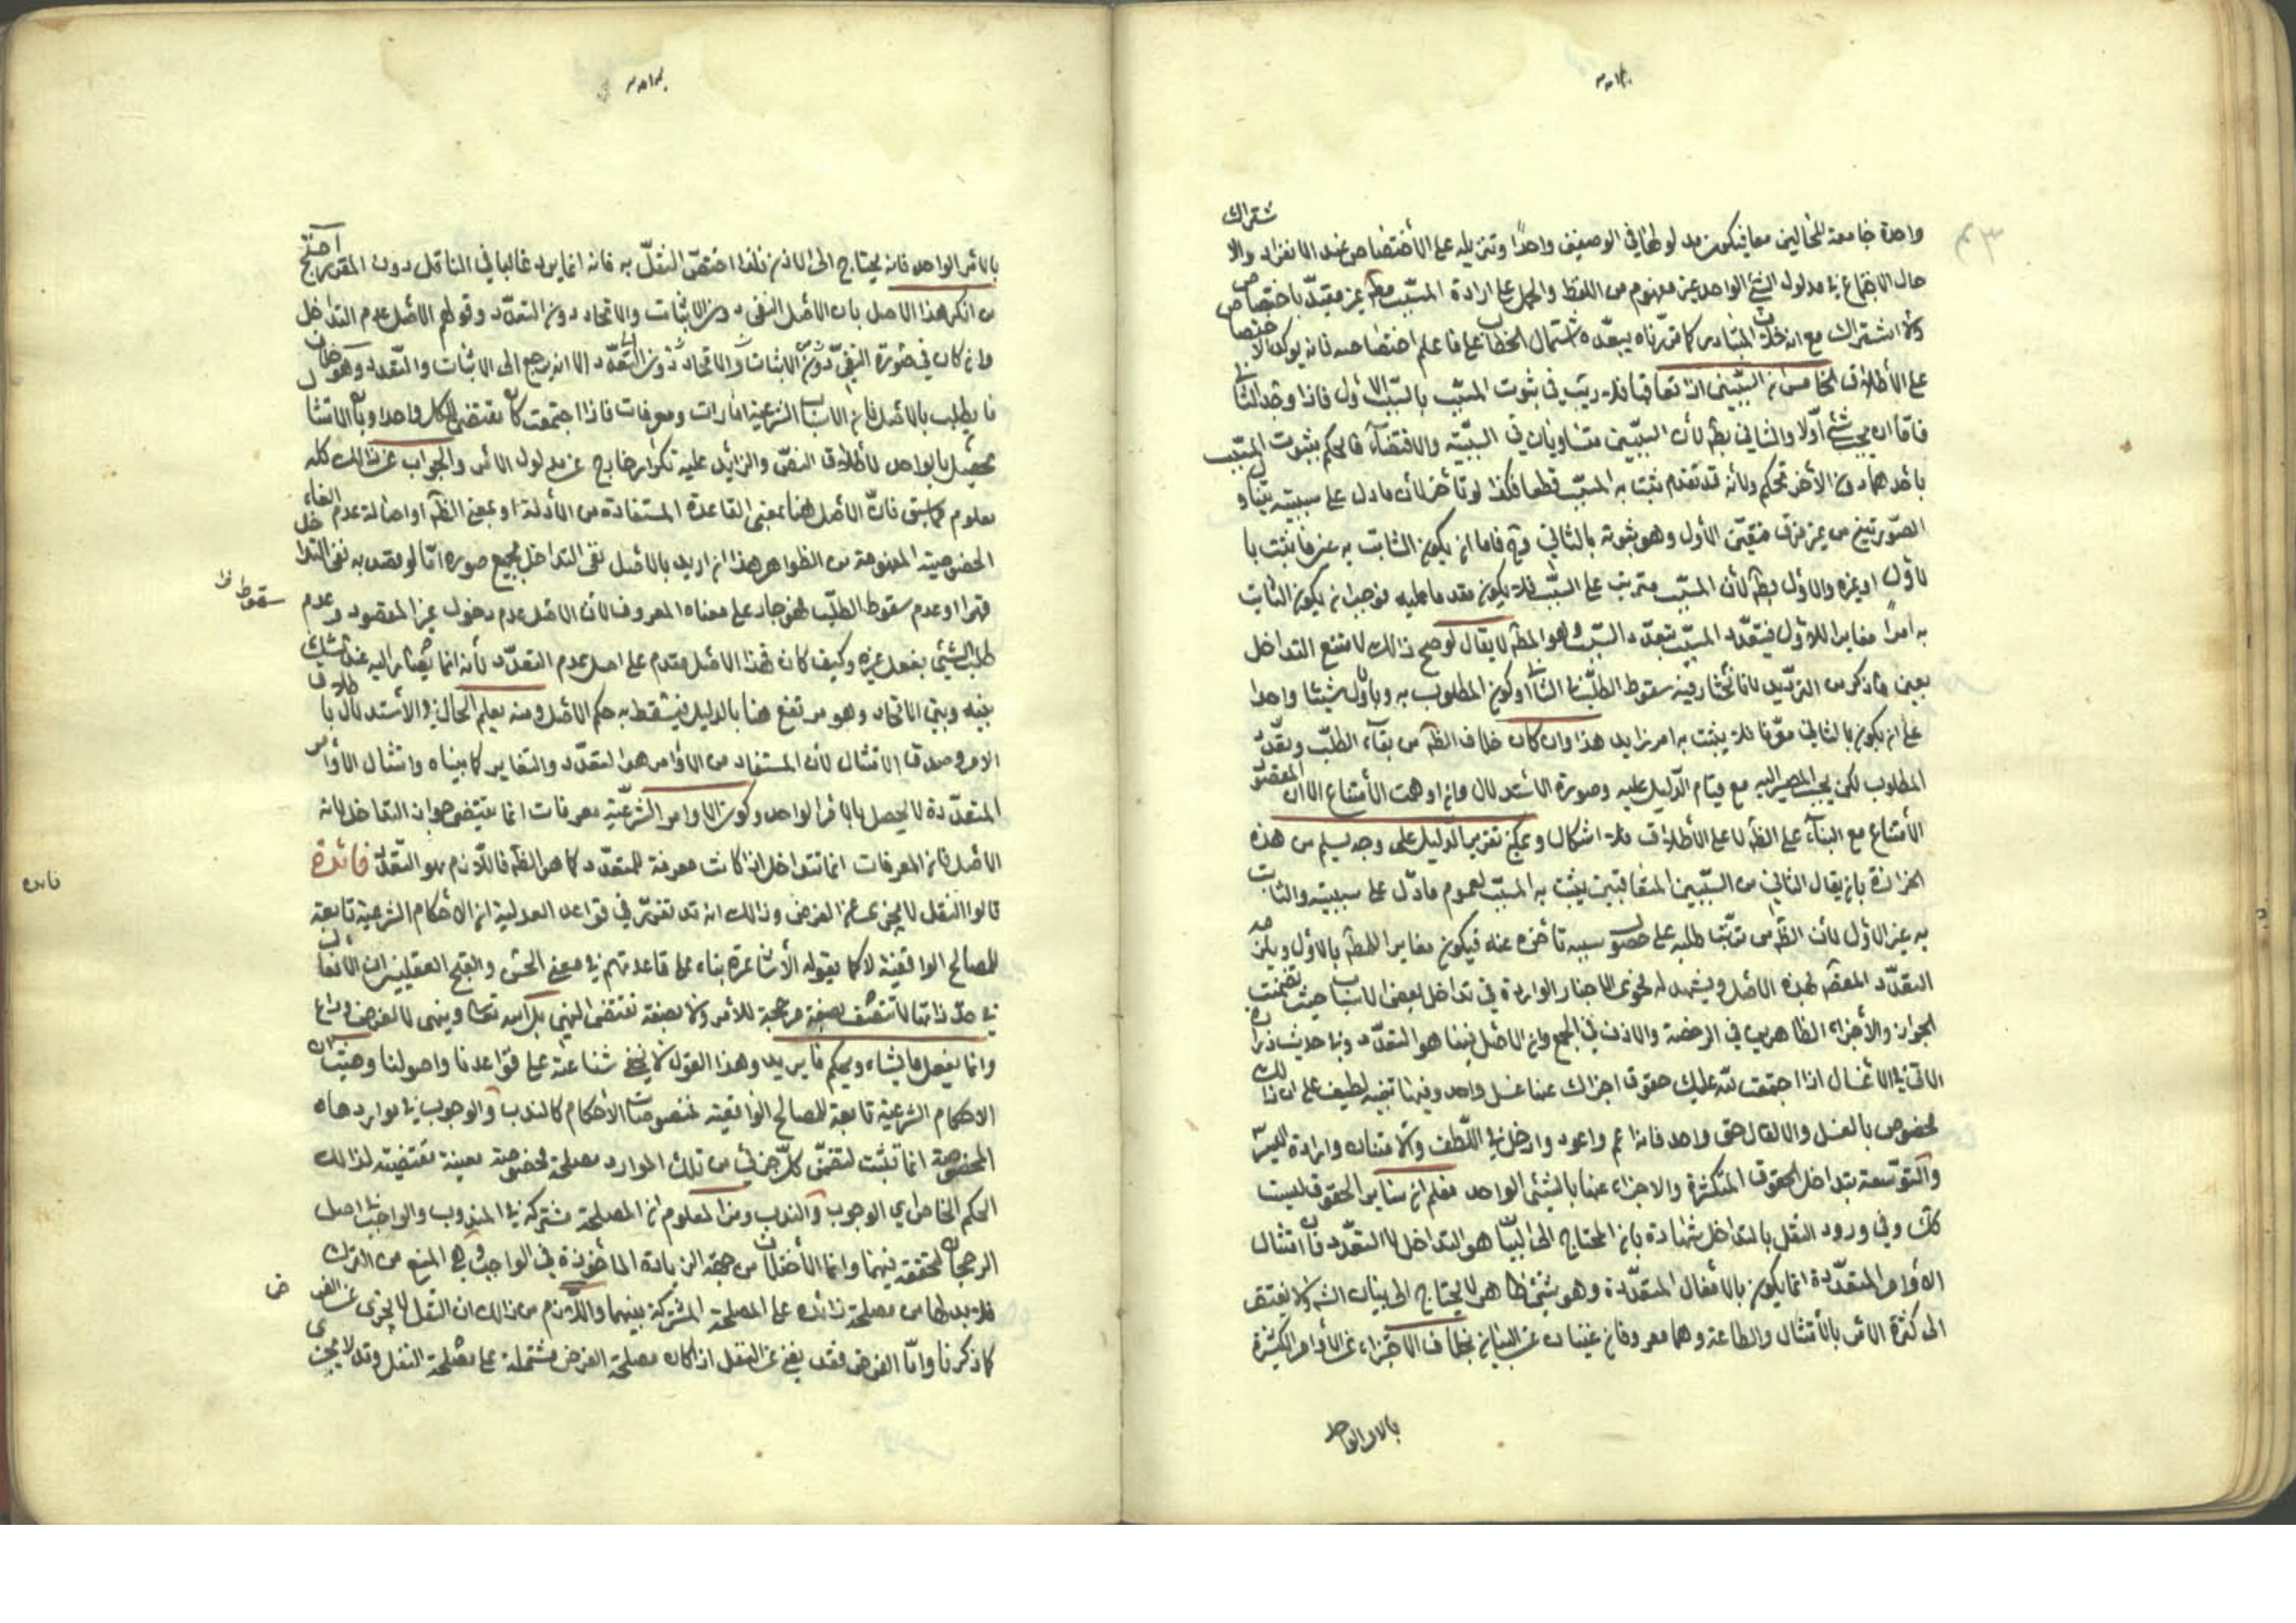 واحدة جامعة للحالين معا فيكون مدلولها في الوصفين واحدا وتنزيله على الأختصاص عند الانفراد والا شتراك
حال الاجتماع في مدلول الشئ الواحد غير مفهوم من اللفظ والحمل على ارادة المسبّب مط غير مقيد باختصاص
ولا اشتراك مع انه خلاف المتبادر كما قررناه يبعّده اشتمال الخطاب على ما علم اختصاصه فانه يؤكد الاختصاص
على الأطلاق الخامس ان السّببين اذا تعاقبا فلا ريب في ثبوت المسبّب بالسّبب الأول فاذا وجد الثاني
فامّا ان يجب شئ أولا والثاني بط لأن السببين متساويان في السببيّة والاقتضاء فالحكم بثبوت المسبّب
بأحدهما دون الأخر تحكم ولأنه قد تقدم ثبت به المسبّب قطعا فكذا لو تأخر لأن ما دل على سببيته يتناول
الصّورتين من غير فرق فتعيّن الأول وهو ثبوته بالثاني وح فاما ان يكون الثابت به عين ما يثبت با
لأول او غيره والأول بط لأن المسبّب مترتب على السّبب فلا يكون متقدما عليه فوجب ان يكون الثابت
به امرا مغايرا للأول فيتعدّد المسبّب بتعدّد السّبب وهو المط لا يقال لو صح ذالك لامتنع التداخل
بعين ما ذكر من الترديد لانا نختار فيه سقوط الطلب بالثاني او كون المطلوب به وبالأول شيئا واحدا
على ان يكون بالثاني مؤكدا فلا يثبت به امر زايد هذا وان كان خلاف الظ من بقاء الطلب وتعدّد
المطلوب لكن يجب المصير اليه مع قيام الدّليل عليه وصورة الأستدلال وان اوهمت الأمتناع الا ان المقصود
الأمتناع مع البناء على الظ لا على الأطلاق فلا اشكال ويمكن تقرير الدّليل على وجه يسلم من هذه
الحزازة بان يقال الثاني من السّببين المتعاقبين يثبت به المسبّب لعموم ما دلّ على سببيته والثابت
به غير الأول لأن الظ من ترتّب طلبه على حصول سببه تأخره عنه فيكون مغايرا للط بالأول ويلزمه
التعدّد المعضد لهذه الأصل ويشهد له فحوى الاخبار الواردة في تداخل بعض الاسباب حيث تضمنت
الجواز والأجزاء الظاهرين في الرخصة والاذن في الجمع وان الأصل فيها هو التعدّد وفي حديث زرارة
الاتي في الأغسال اذا اجتمعت لله عليك حقوق اجزاك عنها غسل واحد وفيها تنبيه لطيف على ان ذالك
مخصوص بالغسل والا لقال حق واحد فانه اعم واعود وادخل في اللّطف والامتنان وارادة اليسر
والتوسعة بتداخل الحقوق المتكثرة والاجزاء عنها بالشئ الواحد فعلم ان ساير الحقوق ليست
كك وفي ورود النقل بالتداخل شهادة بان المحتاج الى البيان هو التداخل لا التعدّد فان امتثال
الأوامر المتعدّدة انما يكون بالأفعال المتعدّدة وهو شئ ظاهر لا يحتاج الى بيان الش ولا يفتقر
الى كثرة الامر بالأمتثال والطاعة وهما معروفان غنيان عن البيان بخلاف الاجزاء عن الأوامر الكثيرة
بالامر الواحد
بالامر الواحد فانه يحتاج الى الاذن فلذا اختصّ النقل به فانه انما يرد غالبا في الناقل دون المقرر احتج
من انكر هذا الاصل بان الأصل النفى دون الاثبات والاتحاد دون التعدّد وقولهم الأصل عدم التداخل
وان كان في صورة النفى دون الاثبات والاتحاد دون التعدّد الا انه يرجع الى الاثبات والتعدد وهو خلاف
ما يطلب بالأصل فان الاسباب الشرعية امارات ومعرفات فاذا اجتمعت كان مقتضى الكل واحدا وبأن الامتثال
يحصل بالواحد لأطلاق النصّ والزائد عليه تكرار خارج عن مدلول الامر والجواب عن ذالك كله
معلوم مما سبق فانّ الأصل هنا بمعنى القاعدة المستفادة من الأدلة او بمعنى الظ او اصالة عدم الغاء
الخصوصيّة المفهومة من الظواهر هذا ان اريد بالأصل نفى التداخل بجميع صوره امّا لو قصد به نفى التداخل
قهرا او عدم سقوط الطلب فهو جار على معناه المعروف لأن الأصل عدم دخول غير المقصود وعدم
سقوط ظ
طلب الشئ بفعل غيره وكيف كان فهذا الأصل مقدم على اصل عدم التعدّد لأنه انما يصار اليه عند الشك
فيه وبنى الاتحاد وهو مرتفع هنا بالدليل فيسقط به حكم الأصل ومنه يعلم الحال في الأستدلال باطلاق
الامر وصدق الامتثال لأن المستفاد من الأوامر هو التعدّد والتغاير كما بيناه وامتثال الأوامر
المتعدّدة لا يحصل بالامر الواحد وكون الاوامر الشرعيّة معرفات انما يقتضى جواز التداخل لا انه
الاصل فان المعرفات انما تتداخل اذا كانت معرفة للمتعدّد كما هو الظ فاللّازم هو التعدّد فائدة
فائده
قالوا النفل لا يجزى عن الفرض وذالك انه قد تقرّر في قواعد العدلية ان الأحكام الشرعية تابعة
للمصالح الواقعية لا كما يقوله الأشاعرة بناء على قاعدتهم في معنى الحسن والقبح العقليين ان الأفعال
في حدّ ذاتها لا تتّصف بصفة مرجحة للأمر ولا بصفة تقتضى النهى بل الله تعا وينهى لا لغرض وداع
وانما يفعل ما يشاء ويحكم ما يريد وهذا القول لا يخفى شناعته على قواعدنا واصولنا وحيث ان
الاحكام الشرعية تابعة للمصالح الواقعية فخصوصيات الأحكام كالندب والوجوب في مواردهما
المخصوصة انما تثبت لتضمّن كلّ جزئي من تلك الموارد مصلحة مخصوصة معينة مقتضية لذالك
الحكم الخاص اي الوجوب والندب ومن المعلوم ان المصلحة مشتركة في المندوب والواجب في اصل
الرجحان لتحققه فيهما وانما الأختلاف من جهة الزيادة المأخوذة في الواجب وهي المنع من الترك
فلا بد لها من مصلحة زائدة على المصلحة المشتركة بينهما واللّازم من ذالك ان النفل لا يجزى عن الفرض
ض
كما ذكرنا وامّا الفرض فقد يغنى عن النفل اذا كان مصلحة الفرض مشتملة على مصلحة النفل وقد لا يجزى